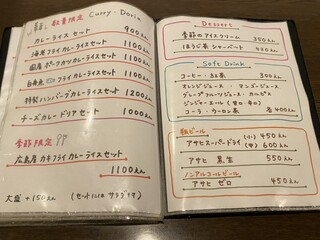 数量限定 Curry・Doria
カレーライスセット 900えん
海老フライカレーライスセット 1100えん
国産ポークカツカレーライスセット 1100えん
白身魚フライカレーライスセット 1100えん
特製ハンバーグカレーライスセット 1200えん
チーズカレードリアセット 1000えん
季節限定
広島産カキフライカレーライスセット
1100えん
大盛+150えん (セットにはサラダ付)
Dessert
季節のアイスクリーム 350えん
ほうじ茶シャーベット 420えん
Soft Drink
コーヒー・紅茶 300えん
オレンジジュース・マンゴージュース
グレープフルーツジュース・カルピス
ジンジャーエール(甘口・辛口)
コーラ・ウーロン茶 各400えん
瓶ビール (小)450えん
アサヒスーパードライ (中)600えん
アサヒ 黒生 550えん
ノンアルコールビール
アサヒ ゼロ 450えん